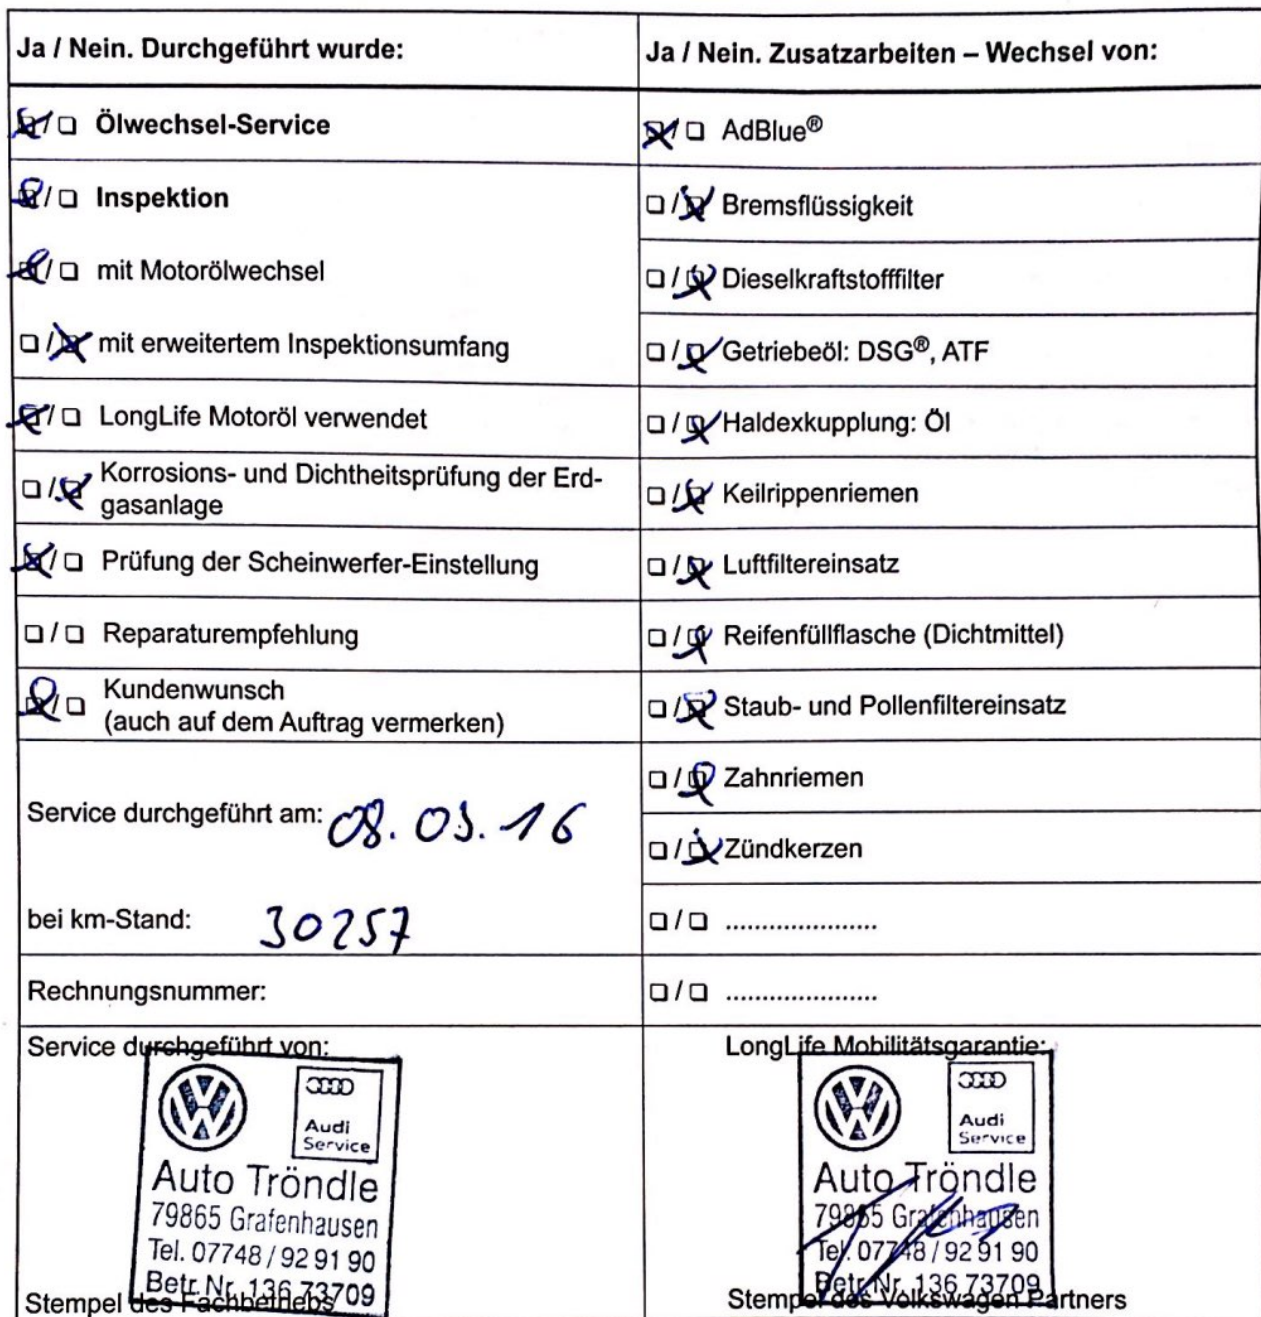 Ja / Nein. Durchgeführt wurde:
Ölwechsel-Service
Inspektion
mit Motorölwechsel
mit erweitertem Inspektionsumfang
LongLife Motoröl verwendet
Korrosions- und Dichtheitsprüfung der Erd-
gasanlage
Prüfung der Scheinwerfer-Einstellung
Reparaturempfehlung
Kundenwunsch
(auch auf dem Auftrag vermerken)
Service durchgeführt am: 08. 03. 16
bei km-Stand: 30257
Rechnungsnummer:
Service durchgeführt von:
Audi
Service
Auto Tröndle
79865 Grafenhausen
Tel. 07748 / 92 91 90
Betr. Nr. 136 73709
Stempel des Fachbetriebs
Ja / Nein. Zusatzarbeiten – Wechsel von:
AdBlue®
Bremsflüssigkeit
Dieselkraftstofffilter
Getriebeöl: DSG®, ATF
Haldexkupplung: Öl
Keilrippenriemen
Luftfiltereinsatz
Reifenfüllflasche (Dichtmittel)
Staub- und Pollenfiltereinsatz
Zahnriemen
Zündkerzen
.....................
.....................
LongLife Mobilitätsgarantie:
Audi
Service
Auto Tröndle
79865 Grafenhausen
Tel. 07748 / 92 91 90
Betr. Nr. 136 73709
Stempel des Volkswagen Partners